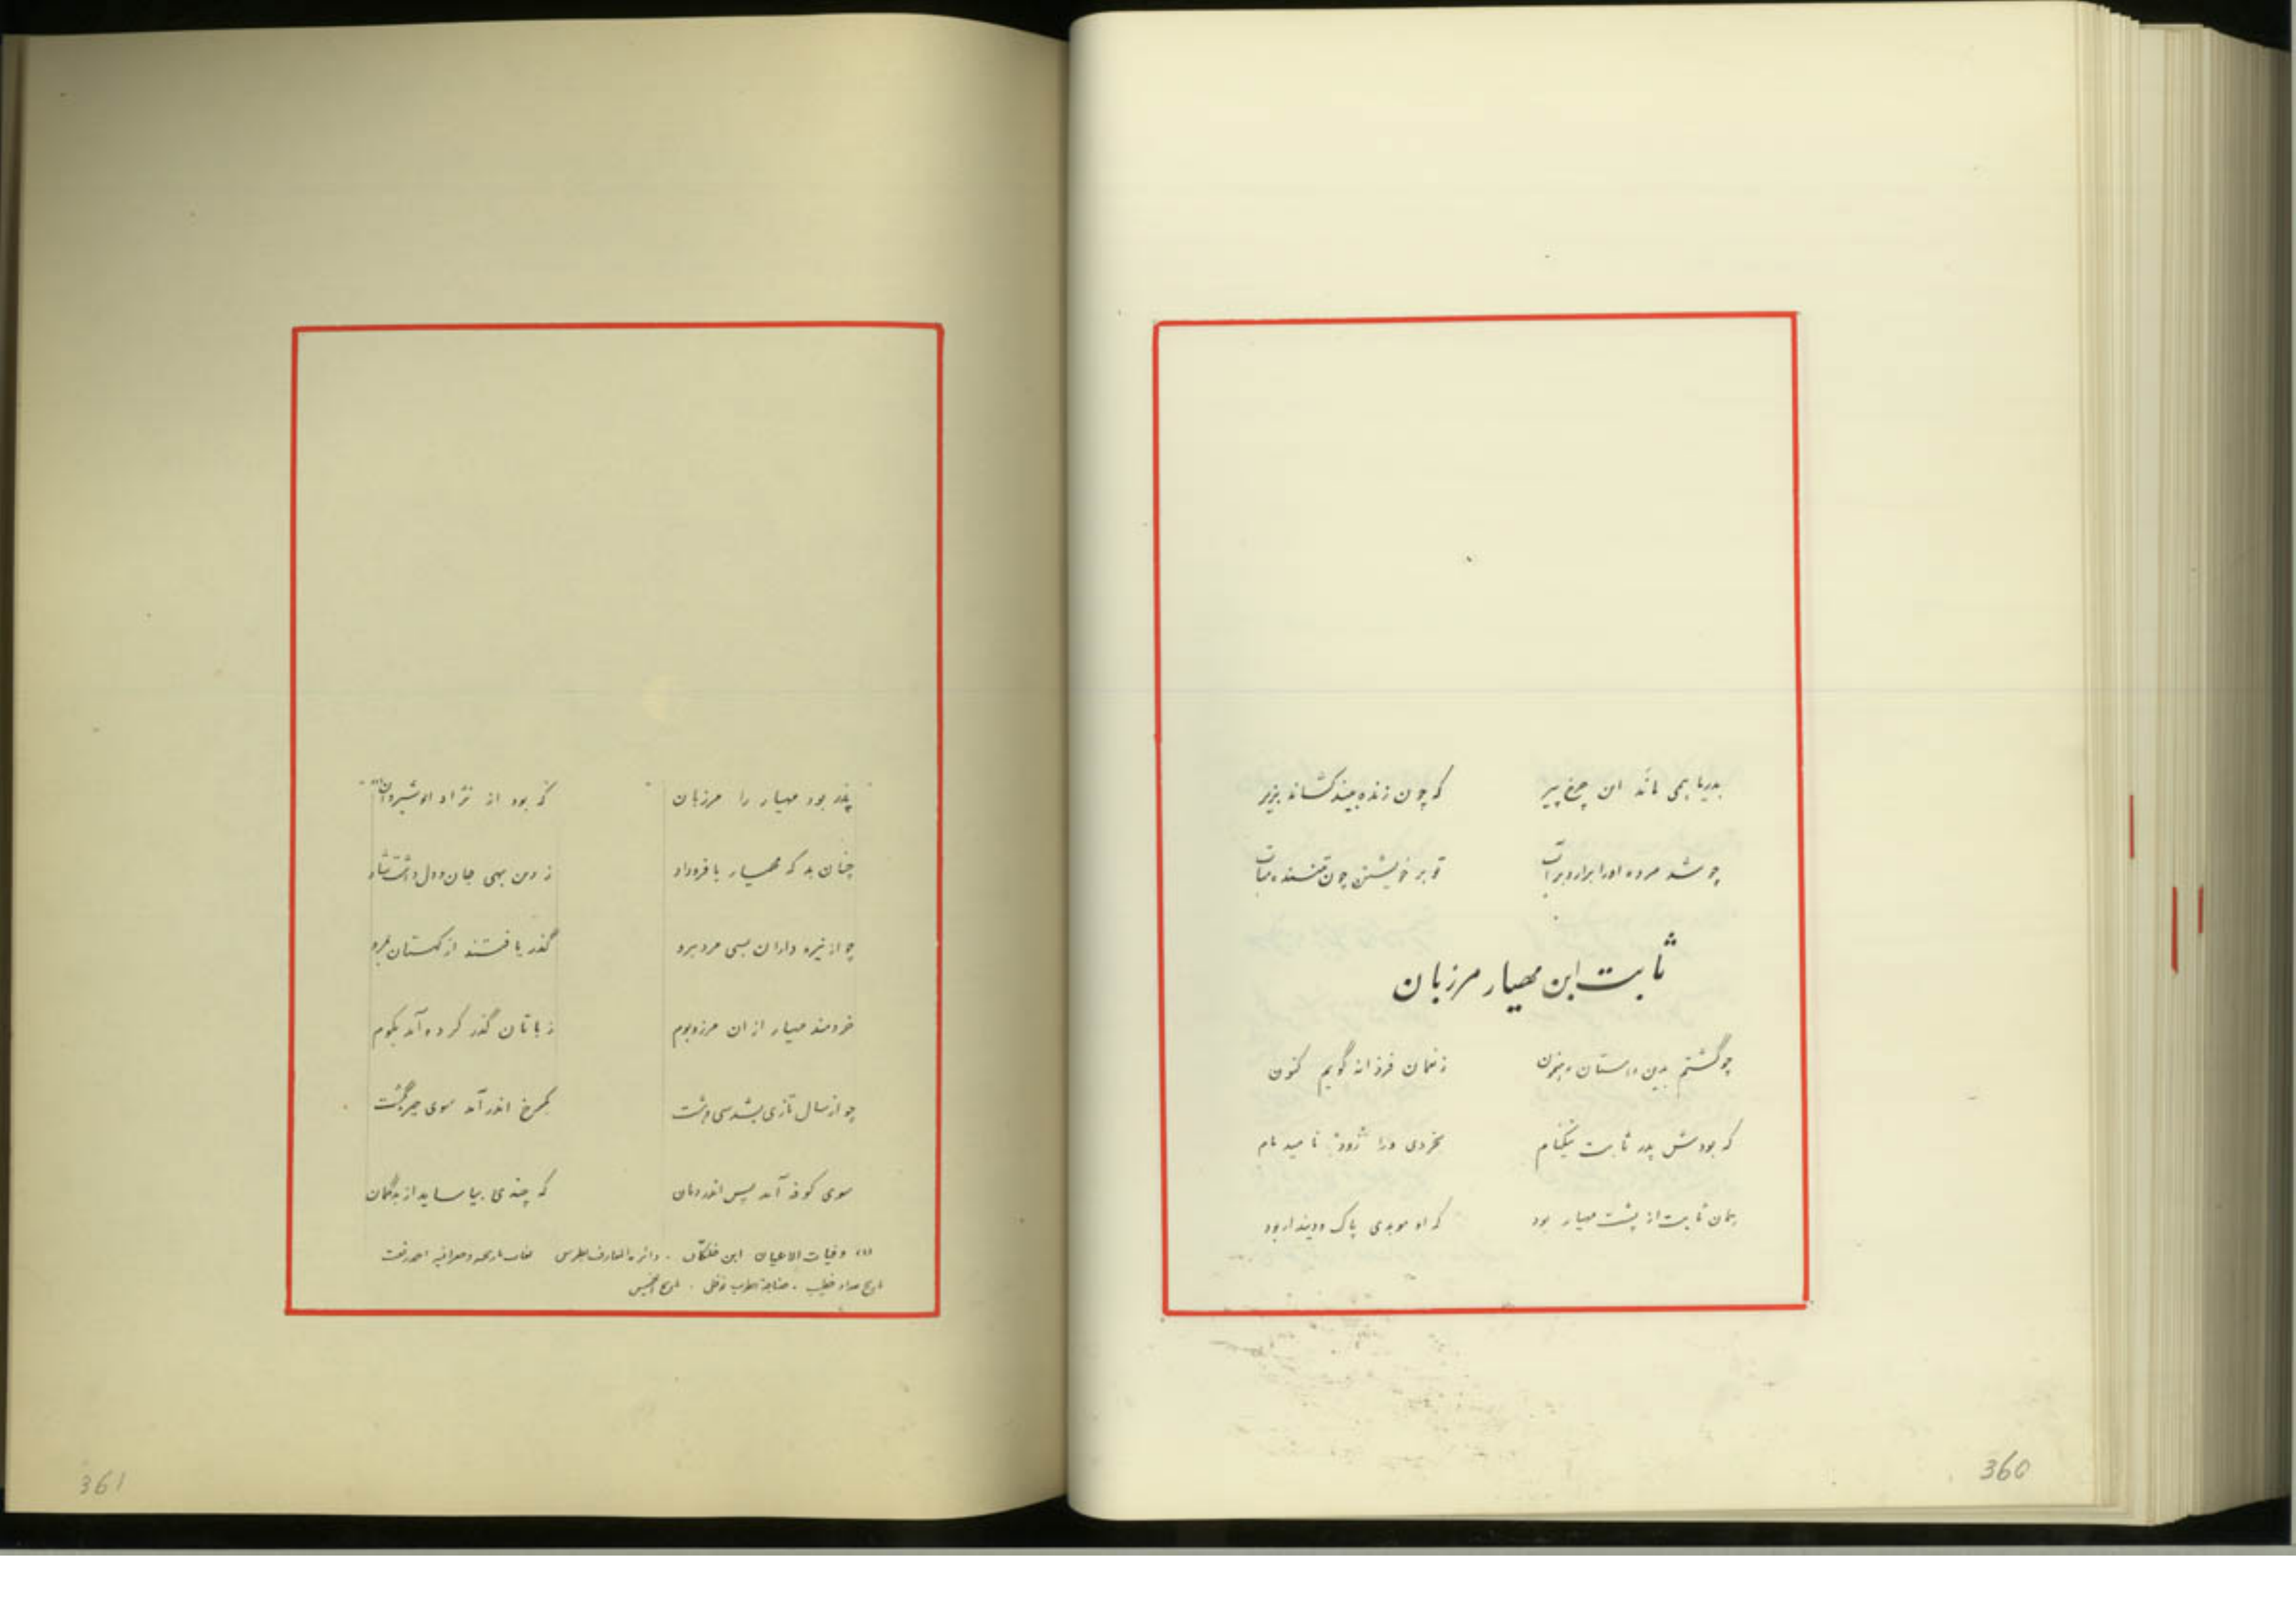 بدریا همی ماند این چرخ پیر
که چون زنده بیند کشاند بزیر
چو شد مرده او را برآرد بر آب
تو بر خویشتن چون
ثابت ابن مهیار مرزبان
چو گشتم بدین داستان رهنمون
ز نعمان فرزانه گویم کنون
که بودش پدر ثابت نیکنام
بخردی ورا نامید نام
همان ثابت از پشت مهیار بود
که او موبدی پاک و دیندار بود
360
پدر بود مهیار را مرزبان
که بود از نژاد انوشیروان (۱)
چنان بد که مهیار با فرو داد
ز دین بهی جان و دل داشت شاد
چو از نیزه داران بسی مرد مرد
گذر یافتند از کهستان
خردمند مهیار از آن مرز و بوم
ز باتان گذر کرده آمد بکوم
چو از سال تازی بشد سی و هشت
بکرخ اندر آمد سوی حیره گشت
سوی کوفه آمد پس اندر دمان
که چندی بیاساید از بدگمان
(۱) وفیات الاعیان ابن خلکان . دائرة المعارف بطرس لغات تاریخیه و جغرافیه احمد رفعت
تاریخ بغداد خطیب . نوفل . تاریخ خمیس
361